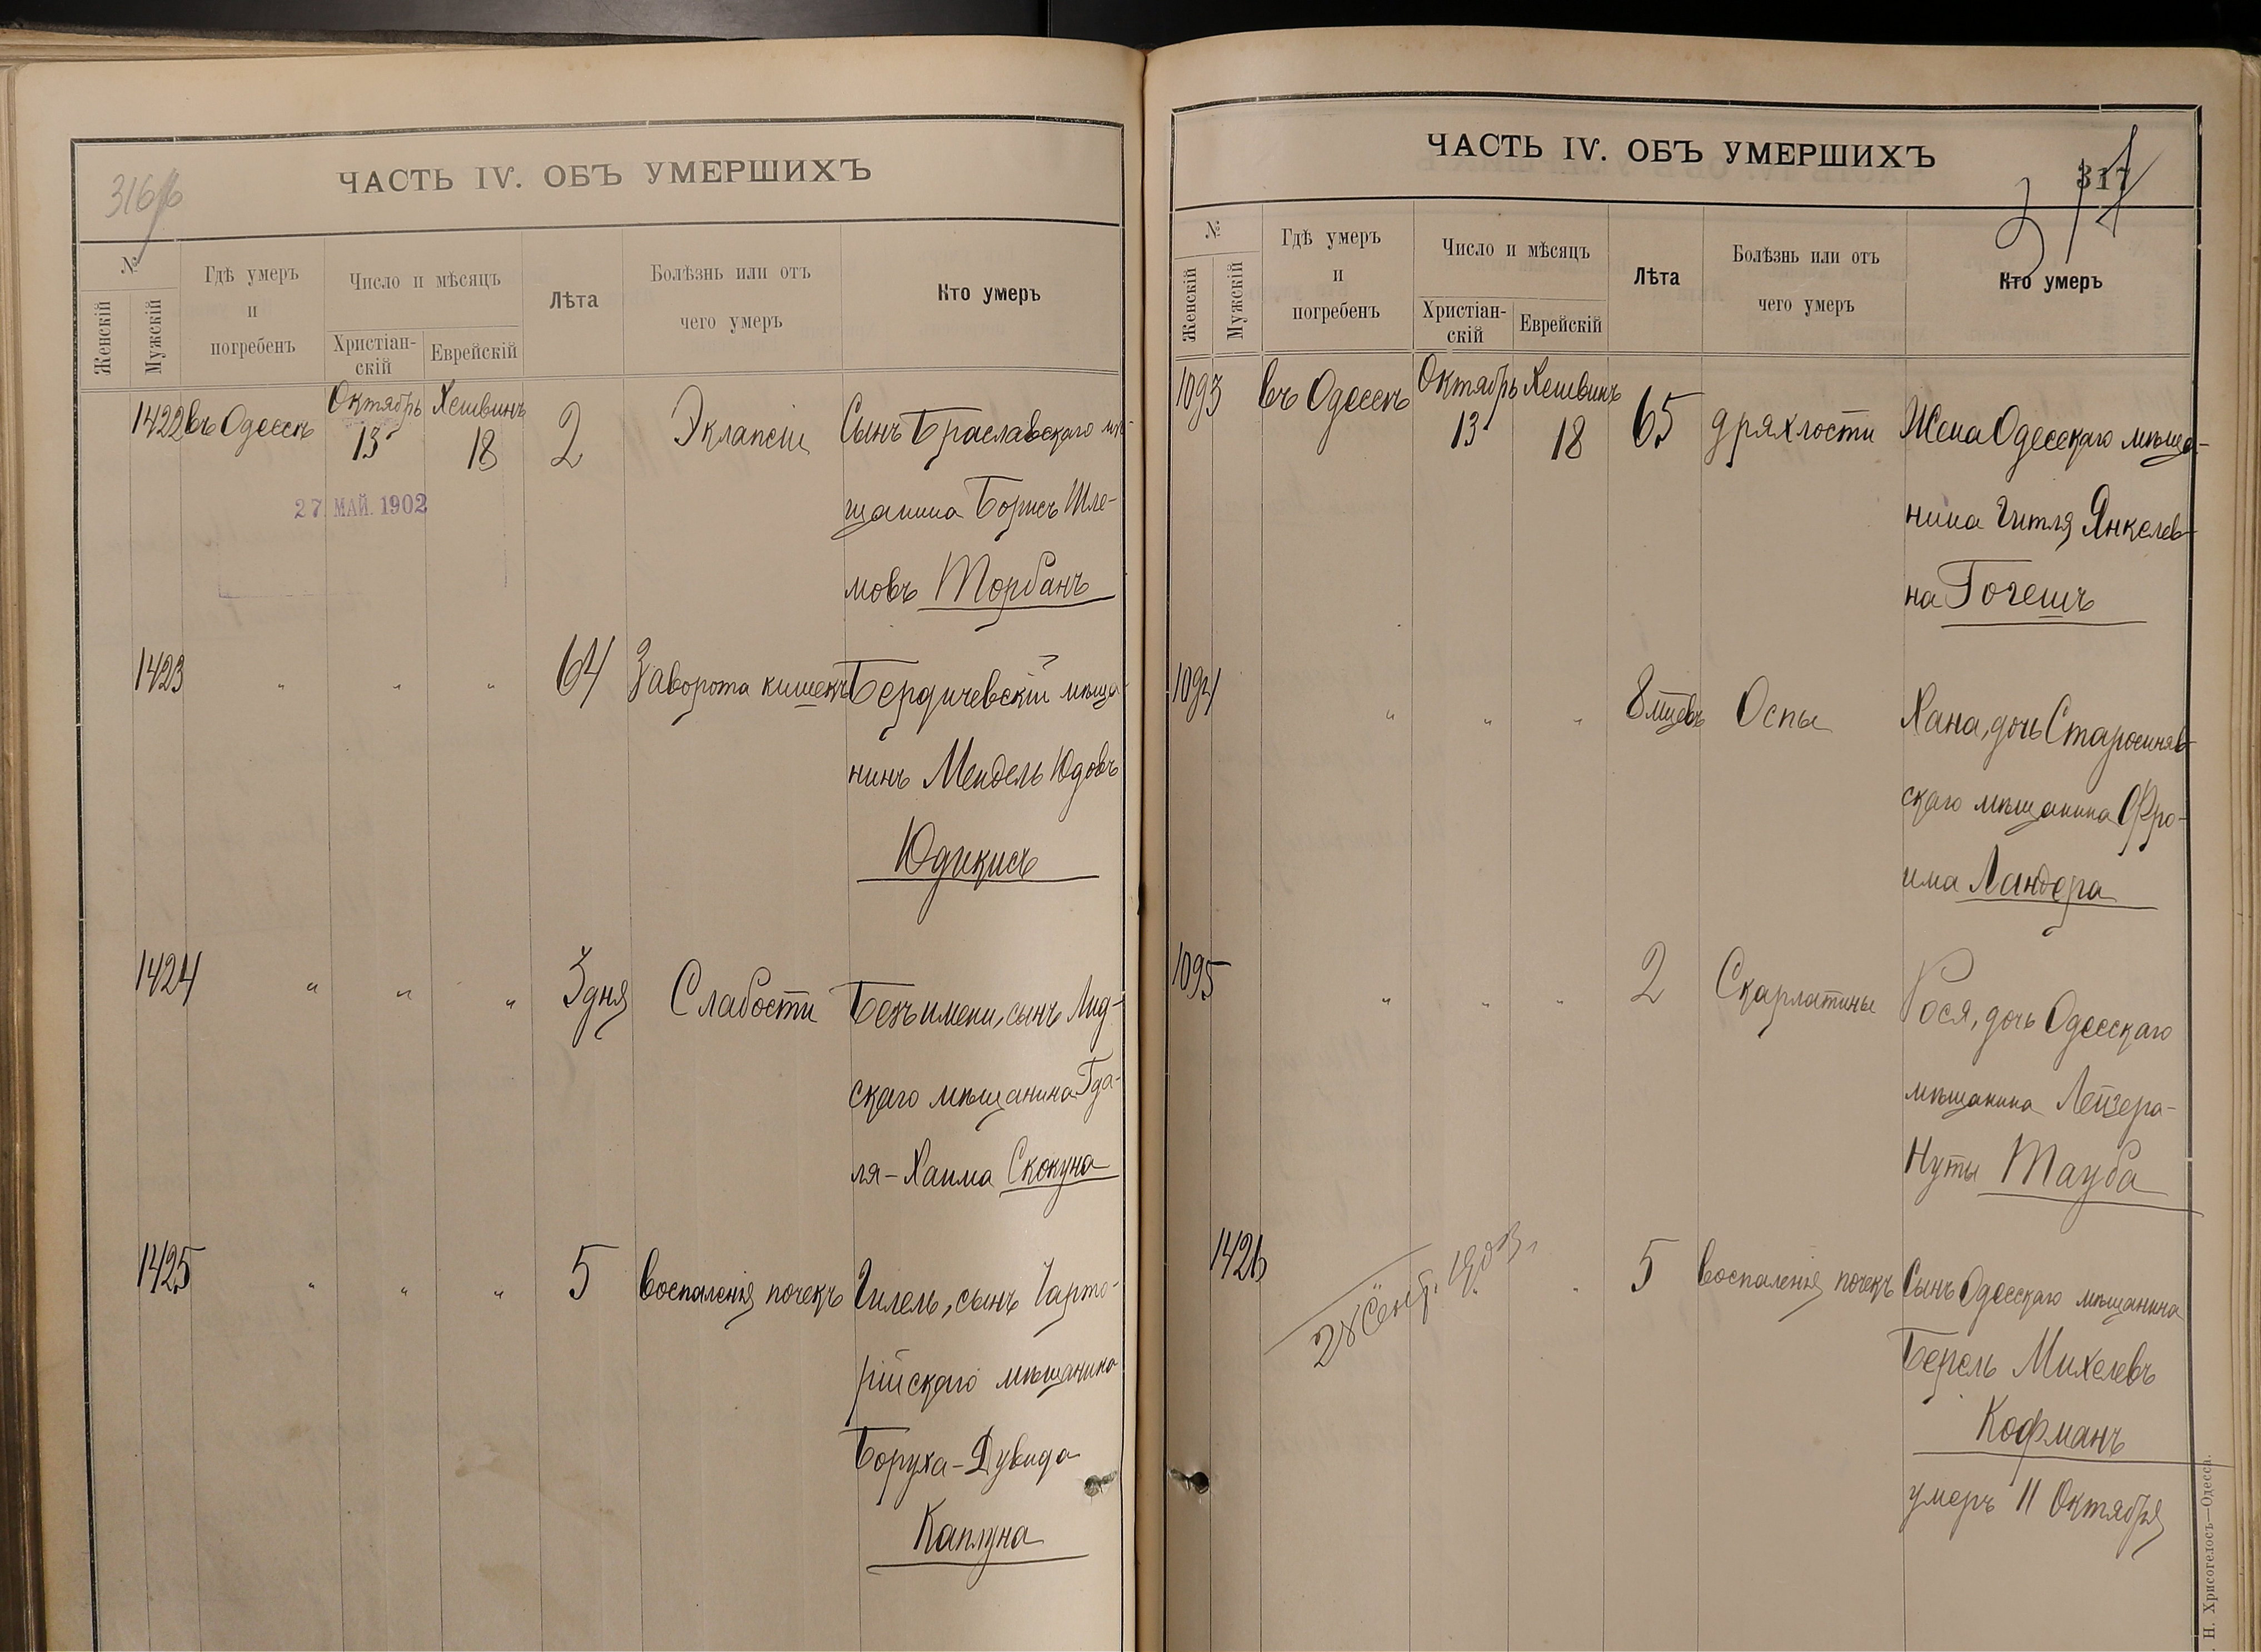 316
ЧАСТЬ IV. ОБЪ УМЕРШИХЪ
№
Женскій
Мужскій
Гдѣ умеръ
и
погребенъ
Число и мѣсяцъ
Христіан-
скій
Еврейскій
Лѣта
Болѣзнь или отъ
чего умеръ
Кто умеръ
1422 въ Одессѣ Октябрь 13 Хешвинъ 18 2 Эклапсіи Сынъ Браславскаго мѣ-
27 МАЙ. 1902
щанина Борисъ Шле-
мовъ Торбанъ
1423 " " " 64 Заворота кишекъ Бердичевскій мѣща-
нинъ Мендель Юдовъ
Юдикисъ
1424 " " " 3 дня Слабости Безъ имени, сынъ Лид-
скаго мѣщанина Гда-
ля-Хаима Скокуна
1425 " " " 5 Воспаленія почекъ Гилель, сынъ Чарто-
рійскаго мѣщанина
Боруха-Дувида
Каплуна
ЧАСТЬ IV. ОБЪ УМЕРШИХЪ
317
317
№
Женскій
Мужскій
Гдѣ умеръ
и
погребенъ
Число и мѣсяцъ
Христіан-
скій
Еврейскій
Лѣта
Болѣзнь или отъ
чего умеръ
Кто умеръ
1093 въ Одессѣ Октябрь 13 Хешвинъ 18 65 дряхлости Жена Одесскаго мѣща-
нина Гитля Янкелев-
на Гогешъ
1094 " " " 8 мцевъ Оспы Хана, дочь Старосиняв-
скаго мѣщанина Фро-
има Ландера
1095 " " " 2 Скарлатины Рося, дочь Одесскаго
мѣщанина Лейзера-
Нуты Тауба
1426 " " 5 Воспаленія почекъ Сынъ Одесскаго мѣщанина
28 Сент. 1903
Берель Михелевъ
Кофманъ
умеръ 11 Октября
Н. Хрисогелосъ—Одесса.